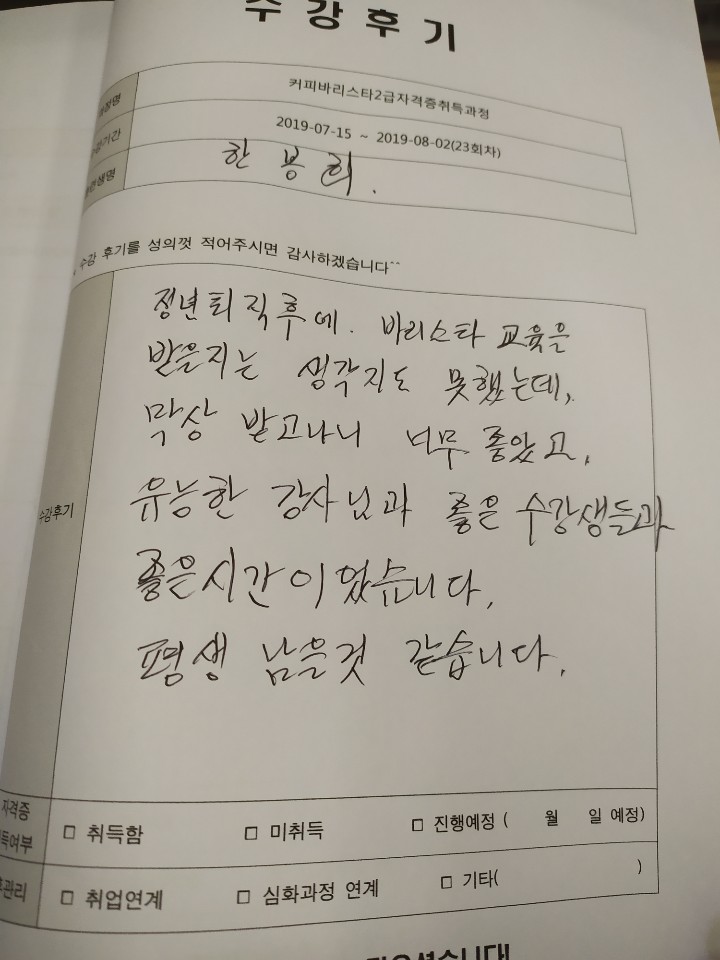 수강후기
커피바리스타2급자격증취득과정
2019-07-15 ~ 2019-08-02(23회차)
한봉희.
수강 후기를 성의껏 적어주시면 감사하겠습니다^^
수강후기
정년퇴직후에. 바리스타 교육을
받을지는 생각지도 못했는데,
막상 받고나니 너무 좋았고,
유능한 강사님과 좋은 수강생들과
좋은시간이었습니다.
평생 남을것 같습니다.
자격증
□ 취득함 □ 미취득 □ 진행예정 ( 월 일 예정)
□ 취업연계 □ 심화과정 연계 □ 기타( )